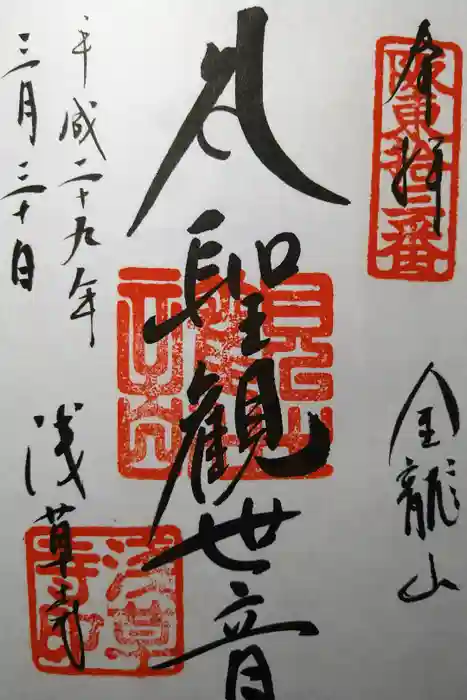 奉拝
阪東拾三番
金龍山
聖観世音
平成二十九年
三月三十日
浅草寺
浅草
寺印